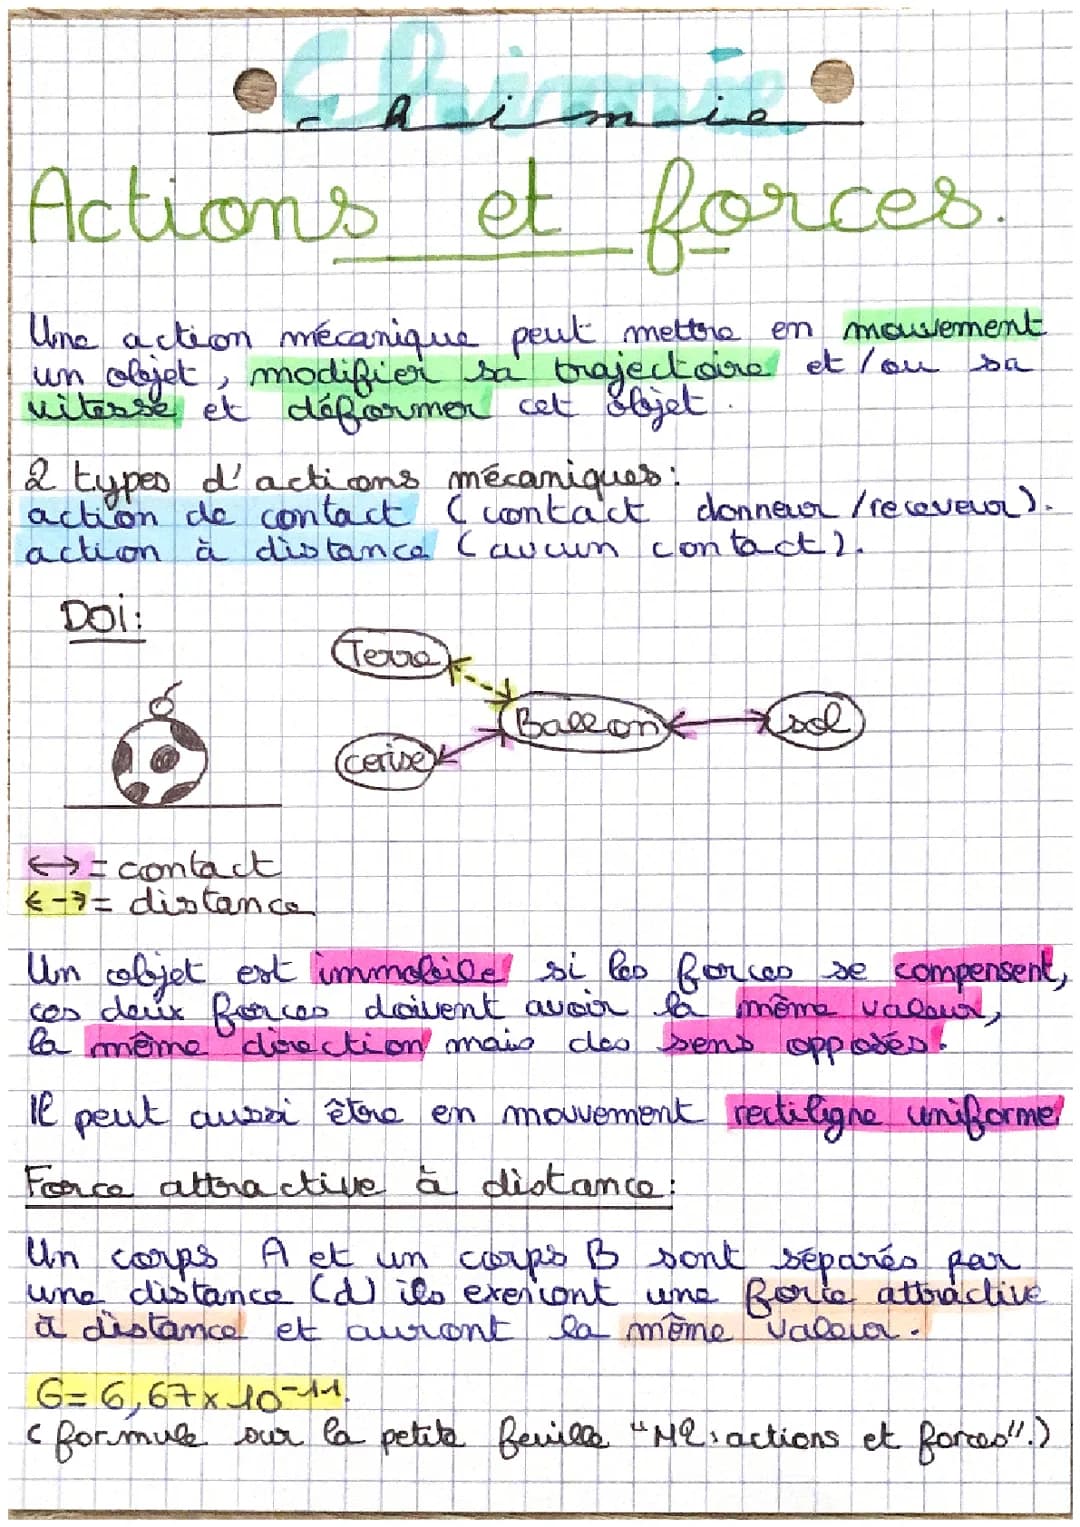 Chimie
Actions et forces.
Une action mécanique peut mettre en mouvement
un objet, modifier sa trajectoire et/ou sa
vitesse et déformer cet objet.
2 types d'actions mécaniques:
action de contact (contact donneur/receveur).
action à distance (aucun contact).
DOi:
Terre
Ballon
sol
cerise
↔ = contact
←-→ = distance
Un objet est immobile si les forces se compensent,
ces deux forces doivent avoir la même valeur,
la même direction mais des sens opposés.
Il peut aussi être en mouvement rectiligne uniforme
Force attractive à distance:
Un corps A et un corps B sont séparés par
une distance (d) ils exercont une force attractive
à distance et auront la même valeur.
G= 6,67 x 10⁻¹¹.
(formule sur la petite feuille "M2: actions et forces".)